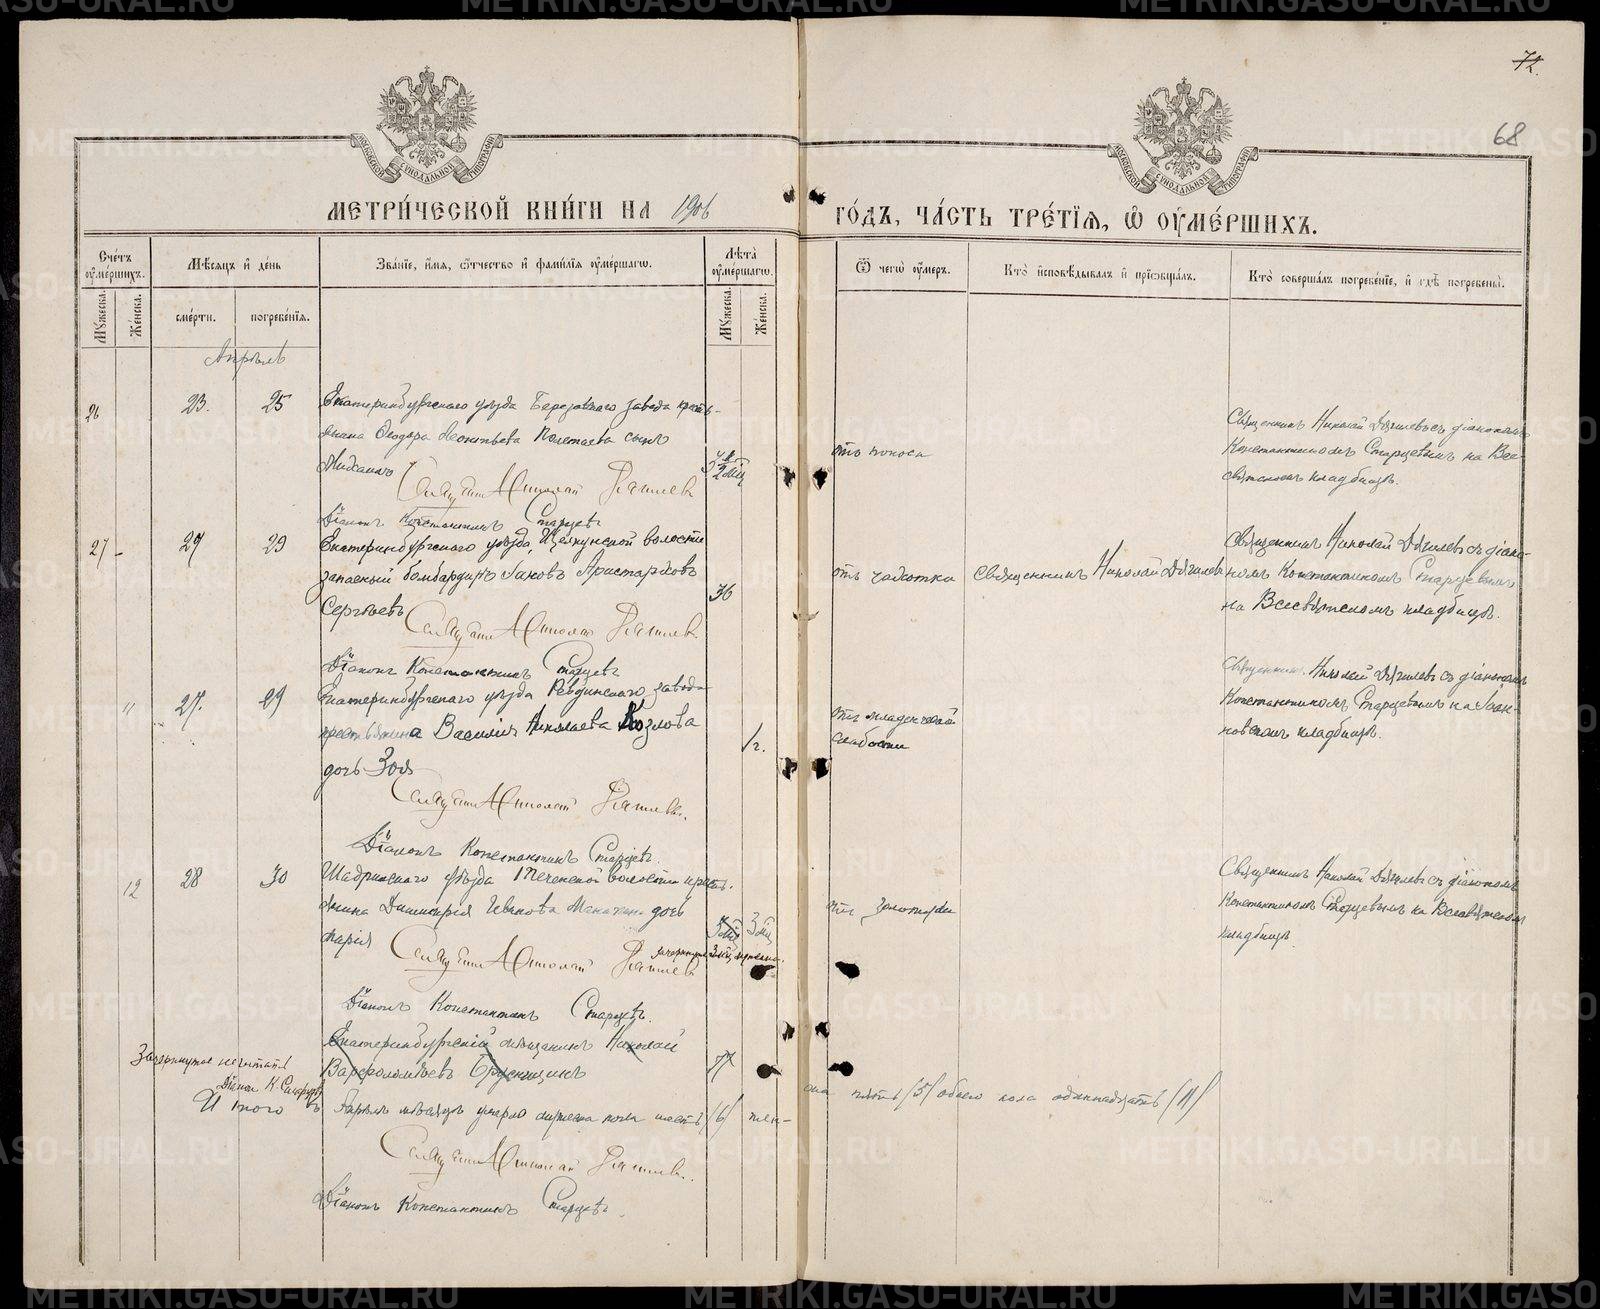 72.
68
МОСКОВСКОЙ СѴНОДАЛЬНОЙ ТИПОГРАФІИ
МОСКОВСКОЙ СѴНОДАЛЬНОЙ ТИПОГРАФІИ
МЕТРИ́ЧЕСКОЙ КНИ́ГИ НА 1906
ГО́ДЪ, ЧА́СТЬ ТРЕ́ТІѦ, Ѿ ОУМЕ́РШИХЪ.
Сче́тъ оумершихъ.
Мѣсяцъ и де́нь
Зва́ніе, и́мя, ѻтчество и фами́лія оумершагѡ.
Лѣта̀ оумершагѡ.
Мꙋжеска.
Же́нска.
сме́рти.
погребе́нія.
Мꙋжеска.
Же́нска.
Ѿ чегѡ̀ оумеръ.
Кто̀ исповѣ́дывалъ и пріѡбща́лъ.
Кто̀ соверша́лъ погребе́ніе, и гдѣ̀ погребены̀.
Апрѣль
26
23.
25
Екатеринбургскаго уѣзда Березовскаго завода кресть-
янина Ѳеодора Леонтьева Полетаева сынъ
Михаилъ
Священникъ Николай Дягилевъ
Діаконъ Константинъ Старцевъ
отъ поноса
Священникъ Николай Дягилевъ съ діакономъ
Константиномъ Старцевымъ на Все-
святскомъ кладбищѣ.
27
27
29
Екатеринбургскаго уѣзда, Щелкунской волости
запасный бомбардиръ Іаковъ Аристарховъ
Сергѣевъ
36
Священникъ Николай Дягилевъ
Діаконъ Константинъ Старцевъ
отъ чахотки
Священникъ Николай Дягилевъ
Священникъ Николай Дягилевъ съ діако-
номъ Константиномъ Старцевымъ
на Всесвятскомъ кладбищѣ.
"
27.
29
Екатеринбургскаго уѣзда Ревдинскаго завода
крестьянина Василія Николаева Козлова
дочь Зоя
1 г.
Священникъ Николай Дягилевъ.
Діаконъ Константинъ Старцевъ.
отъ младенческой
слабости
Священникъ Николай Дягилевъ съ діакономъ
Константиномъ Старцевымъ на Іоан-
новскомъ кладбищѣ.
12
28
30
Шадринскаго уѣзда Теченской волости кресть-
янина Димитрія Иванова дочь
Марія
3 мѣс
3 мѣс
Священникъ Николай Дягилевъ
Діаконъ Константинъ Старцевъ.
отъ золотухи
Священникъ Николай Дягилевъ съ діакономъ
Константиномъ Старцевымъ на Всесвятскомъ
кладбищѣ.
Екатеринбургскій мѣщанинъ Николай
Варфоломѣевъ Брусницинъ
77
Зачеркнутое не читать
Діакон К. Старцевъ
Итого въ Апрѣлѣ мѣсяцѣ умерло мужеска пола шесть (6) жен-
ска пять (5) обоего пола одиннадцать (11)
Священникъ Николай Дягилевъ.
Діаконъ Константинъ Старцевъ.
METRIKI.GASO-URAL.RU